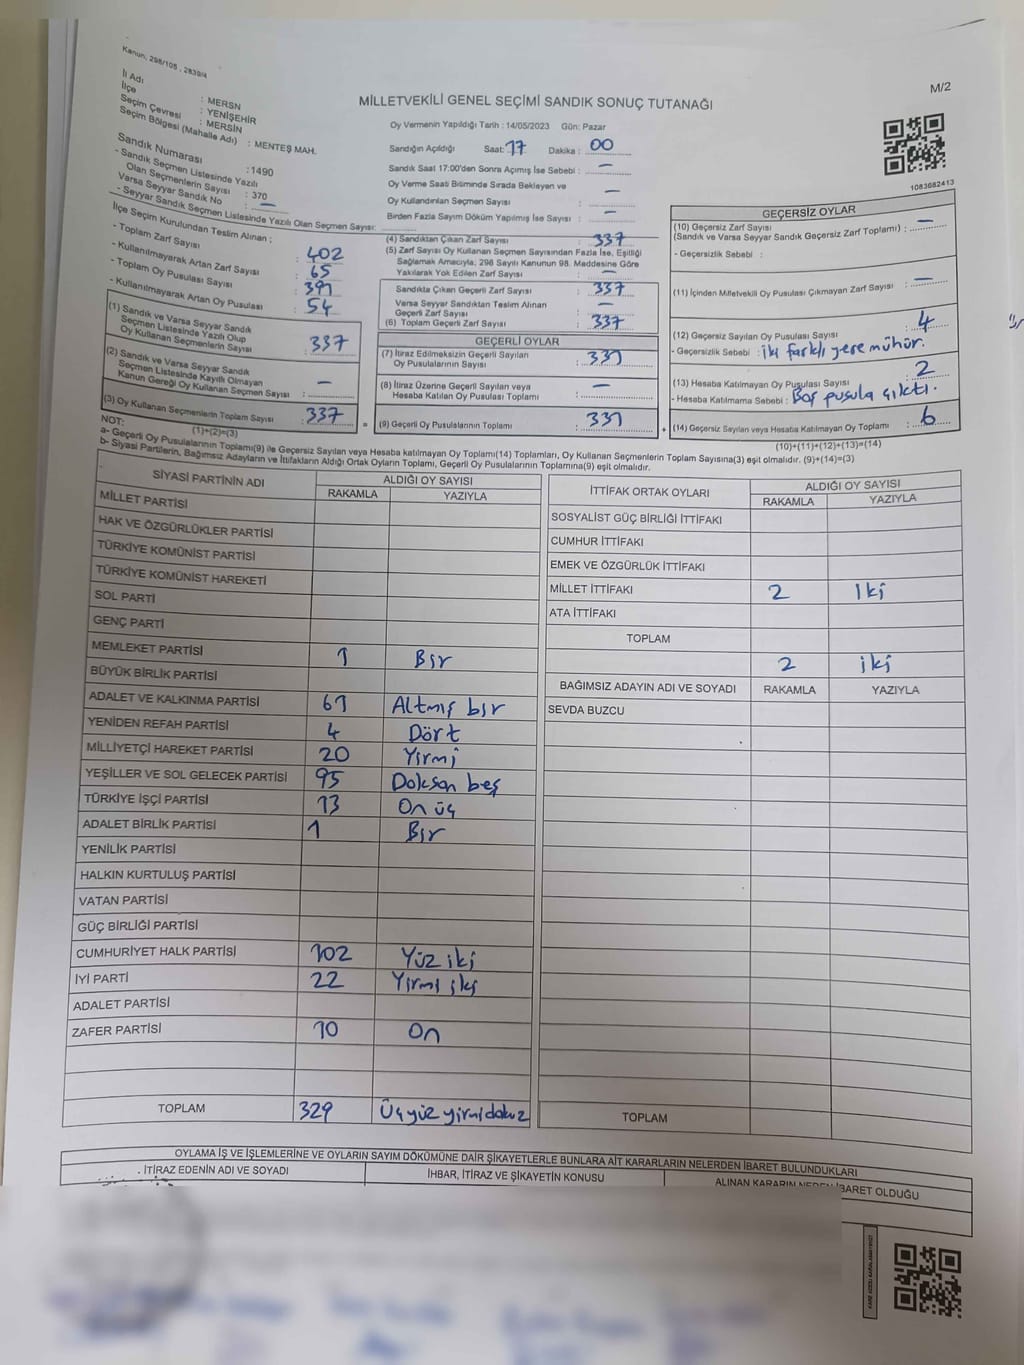 Kanun, 298/105 , 2839/4
M/2
MİLLETVEKİLİ GENEL SEÇİMİ SANDIK SONUÇ TUTANAĞI
İl Adı : MERSN
İlçe : YENİŞEHİR
Seçim Çevresi : MERSİN
Seçim Bölgesi (Mahalle Adı) : MENTEŞ MAH.
Sandık Numarası : 1490
- Sandık Seçmen Listesinde Yazılı
Olan Seçmenlerin Sayısı : 370
Varsa Seyyar Sandık No : —
- Seyyar Sandık Seçmen Listesinde Yazılı Olan Seçmen Sayısı:
İlçe Seçim Kurulundan Teslim Alınan ;
- Toplam Zarf Sayısı : 402
- Kullanılmayarak Artan Zarf Sayısı : 65
- Toplam Oy Pusulası Sayısı : 391
- Kullanılmayarak Artan Oy Pusulası : 54
(1) Sandık ve Varsa Seyyar Sandık
Seçmen Listesinde Yazılı Olup
Oy Kullanan Seçmenlerin Sayısı : 337
(2) Sandık ve Varsa Seyyar Sandık
Seçmen Listesinde Kayıtlı Olmayan
Kanun Gereği Oy Kullanan Seçmen Sayısı : —
(3) Oy Kullanan Seçmenlerin Toplam Sayısı : 337
(1)+(2)=(3)
Oy Vermenin Yapıldığı Tarih : 14/05/2023 Gün: Pazar
Sandığın Açıldığı Saat: 17 Dakika : 00
Sandık Saat 17:00'den Sonra Açımış İse Sebebi : —
Oy Verme Saati Bitiminde Sırada Bekleyen ve
Oy Kullandırılan Seçmen Sayısı : —
Birden Fazla Sayım Döküm Yapılmış İse Sayısı : —
(4) Sandıktan Çıkan Zarf Sayısı : 337
(5) Zarf Sayısı Oy Kullanan Seçmen Sayısından Fazla İse, Eşitliği
Sağlamak Amacıyla, 298 Sayılı Kanunun 98. Maddesine Göre
Yakılarak Yok Edilen Zarf Sayısı : —
Sandıkta Çıkan Geçerli Zarf Sayısı : 337
Varsa Seyyar Sandıktan Teslim Alınan
Geçerli Zarf Sayısı : —
(6) Toplam Geçerli Zarf Sayısı : 337
GEÇERLİ OYLAR
(7) İtiraz Edilmeksizin Geçerli Sayılan
Oy Pusulalarının Sayısı : 331
(8) İtiraz Üzerine Geçerli Sayılan veya
Hesaba Katılan Oy Pusulası Toplamı : —
= (9) Geçerli Oy Pusulalarının Toplamı : 331
1083682413
GEÇERSİZ OYLAR
(10) Geçersiz Zarf Sayısı
(Sandık ve Varsa Seyyar Sandık Geçersiz Zarf Toplamı) : —
- Geçersizlik Sebebi :
(11) İçinden Milletvekili Oy Pusulası Çıkmayan Zarf Sayısı : —
(12) Geçersiz Sayılan Oy Pusulası Sayısı : 4
- Geçersizlik Sebebi : iki farklı yere mühür.
(13) Hesaba Katılmayan Oy Pusulası Sayısı : 2
- Hesaba Katılmama Sebebi : Boş pusula çıktı.
+ (14) Geçersiz Sayılan veya Hesaba Katılmayan Oy Toplamı : 6
(10)+(11)+(12)+(13)=(14)
NOT:
a- Geçerli Oy Pusulalarının Toplamı(9) ile Geçersiz Sayılan veya Hesaba Katılmayan Oy Toplamı(14) Toplamları, Oy Kullanan Seçmenlerin Toplam Sayısına(3) eşit olmalıdır. (9)+(14)=(3)
b- Siyasi Partilerin, Bağımsız Adayların ve İttifakların Aldığı Ortak Oyların Toplamı, Geçerli Oy Pusulalarının Toplamına(9) eşit olmalıdır.
SİYASİ PARTİNİN ADI ALDIĞI OY SAYISI
RAKAMLA YAZIYLA
MİLLET PARTİSİ
HAK VE ÖZGÜRLÜKLER PARTİSİ
TÜRKİYE KOMÜNİST PARTİSİ
TÜRKİYE KOMÜNİST HAREKETİ
SOL PARTİ
GENÇ PARTİ
MEMLEKET PARTİSİ 1 Bir
BÜYÜK BİRLİK PARTİSİ
ADALET VE KALKINMA PARTİSİ 61 Altmış bir
YENİDEN REFAH PARTİSİ 4 Dört
MİLLİYETÇİ HAREKET PARTİSİ 20 Yirmi
YEŞİLLER VE SOL GELECEK PARTİSİ 95 Doksan beş
TÜRKİYE İŞÇİ PARTİSİ 13 On üç
ADALET BİRLİK PARTİSİ 1 Bir
YENİLİK PARTİSİ
HALKIN KURTULUŞ PARTİSİ
VATAN PARTİSİ
GÜÇ BİRLİĞİ PARTİSİ
CUMHURİYET HALK PARTİSİ 102 Yüz iki
İYİ PARTİ 22 Yirmi iki
ADALET PARTİSİ
ZAFER PARTİSİ 10 On
TOPLAM 329 Üçyüz yirmidokuz
İTTİFAK ORTAK OYLARI ALDIĞI OY SAYISI
RAKAMLA YAZIYLA
SOSYALİST GÜÇ BİRLİĞİ İTTİFAKI
CUMHUR İTTİFAKI
EMEK VE ÖZGÜRLÜK İTTİFAKI
MİLLET İTTİFAKI 2 Iki
ATA İTTİFAKI
TOPLAM
2 iki
BAĞIMSIZ ADAYIN ADI VE SOYADI RAKAMLA YAZIYLA
SEVDA BUZCU
TOPLAM
OYLAMA İŞ VE İŞLEMLERİNE VE OYLARIN SAYIM DÖKÜMÜNE DAİR ŞİKAYETLERLE BUNLARA AİT KARARLARIN NELERDEN İBARET BULUNDUKLARI
İTİRAZ EDENİN ADI VE SOYADI İHBAR, İTİRAZ VE ŞİKAYETİN KONUSU ALINAN KARARIN NEDEN İBARET OLDUĞU